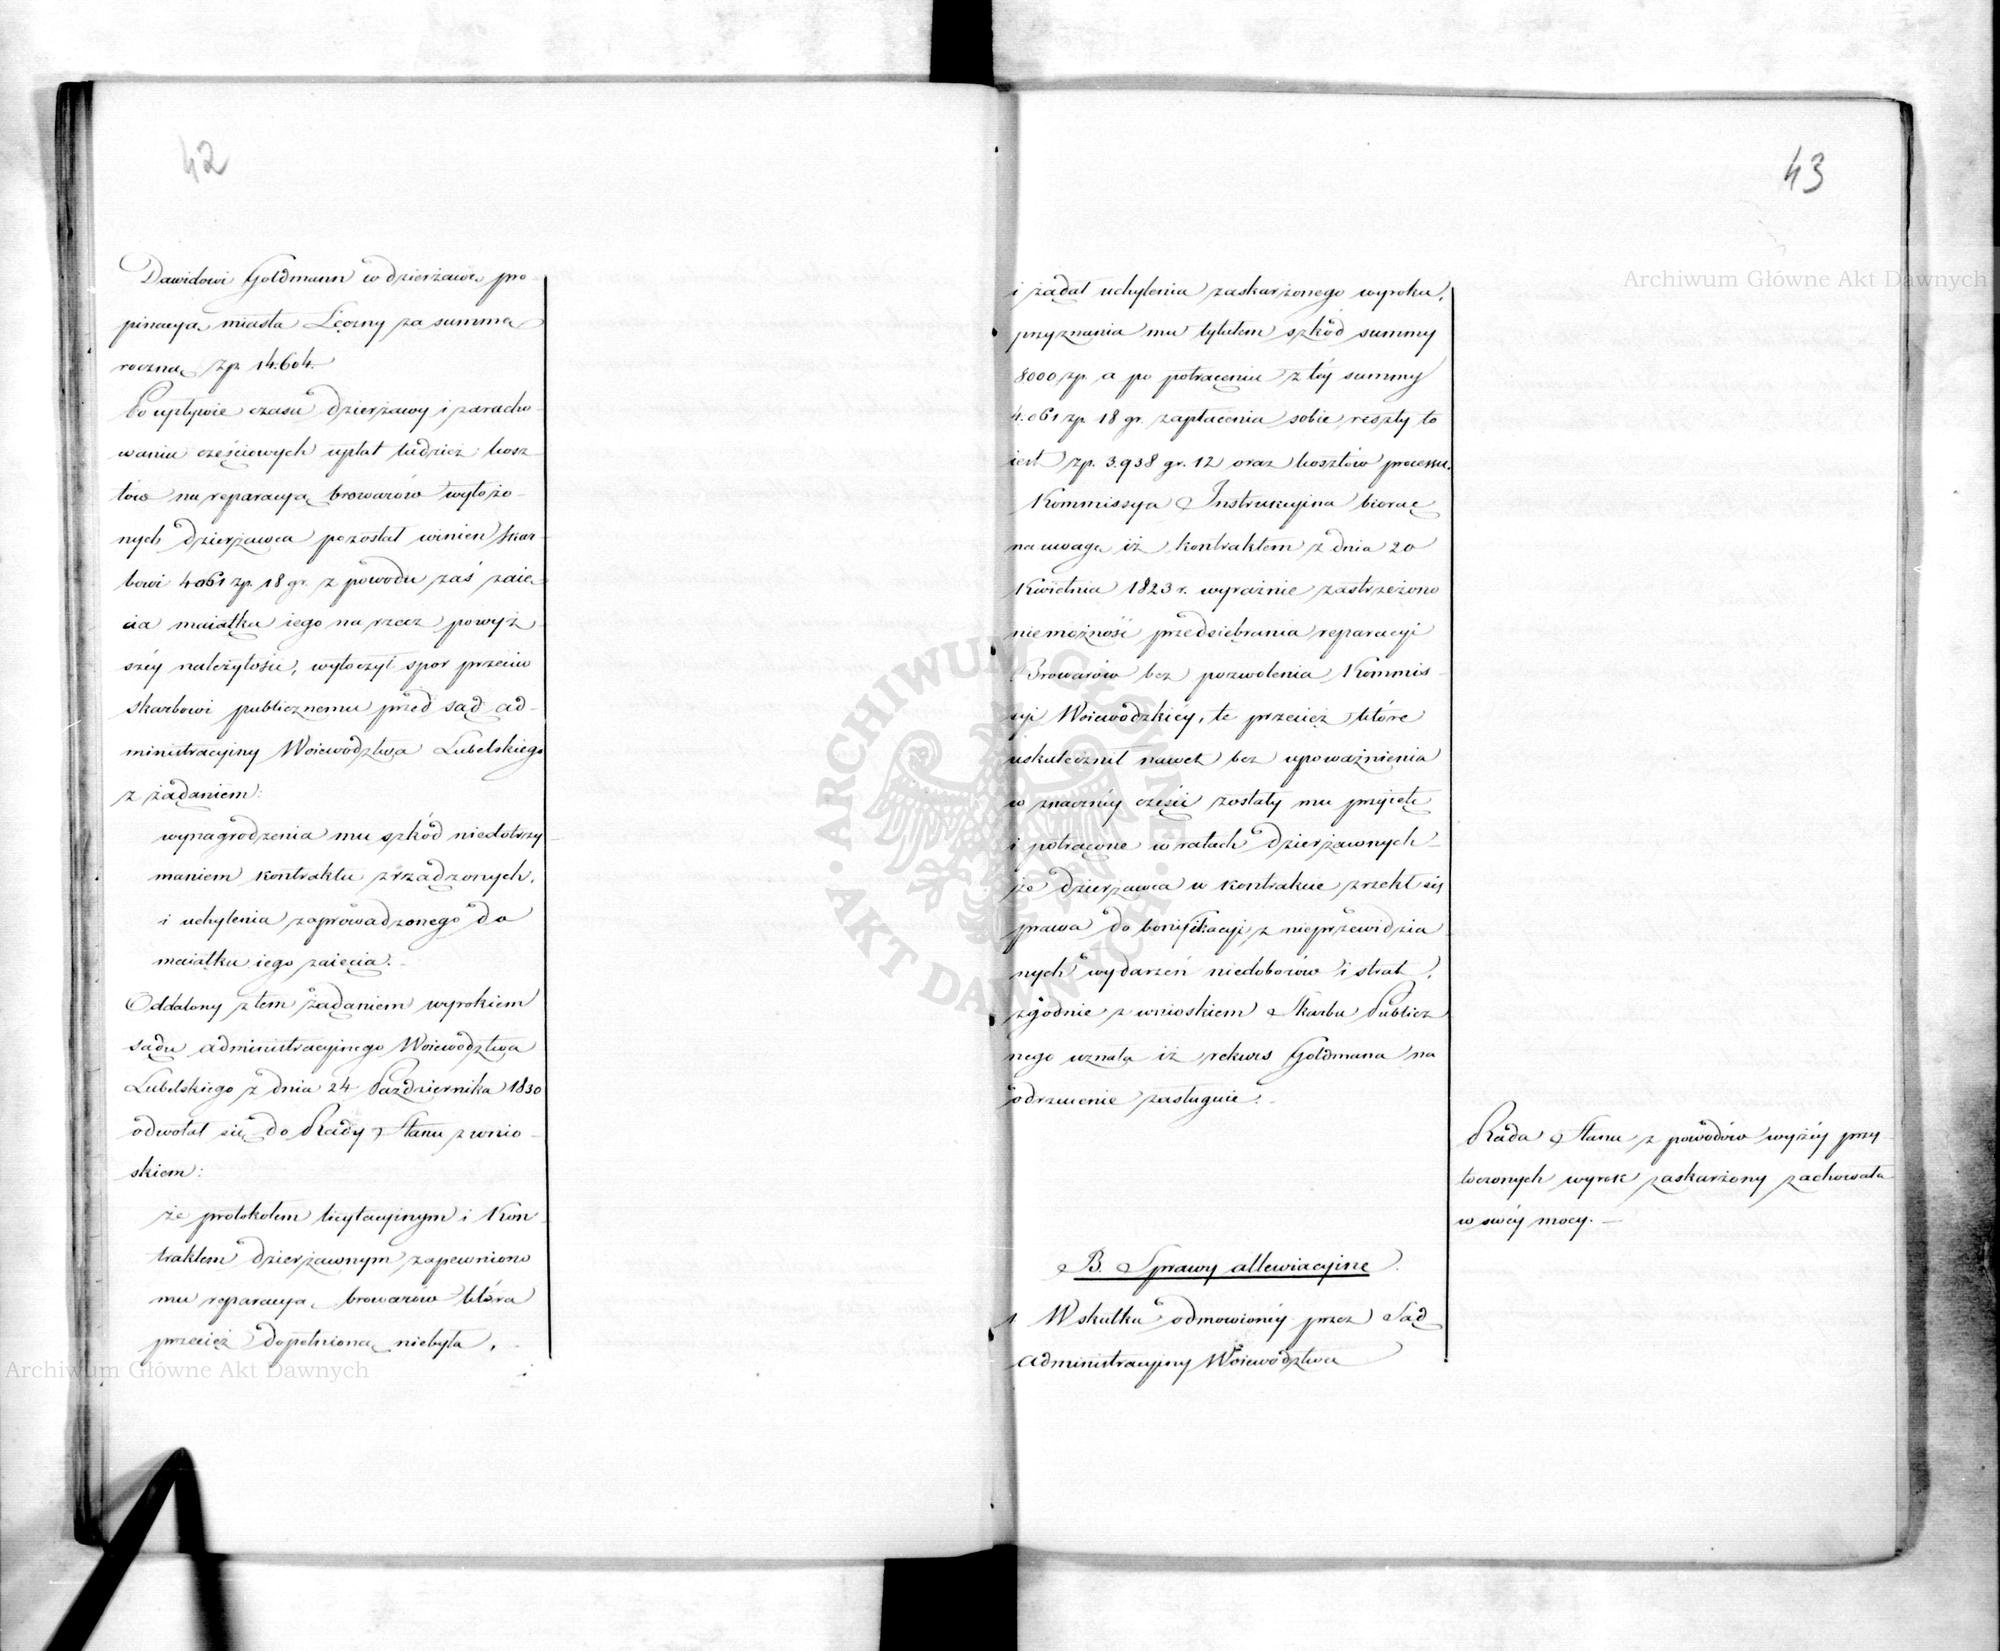 42
Dawidowi Goldmann w dzierżawę pro
pinacyą miasta Lęczny za summę
roczną zp. 14.604.
Po upływie czasu dzierżawy i zaracho-
waniu częściowych upłat tudzież kosz-
tów na reparacyą browarów wyłożo-
nych dzierżawca pozostał winien skar-
bowi 4061 zp. 18 gr. z powodu zaś zaię-
cia maiątku iego na rzecz powyż-
széy należytości, wytoczył spor przeciw
skarbowi publicznemu przed sąd ad-
ministracyiny Woiewództwa Lubelskiego
z żądaniem:
wynagrodzenia mu szkód niedotrzy-
maniem kontraktu zrządzonych,
i uchylenia zaprowadzonego do
maiątku iego zaięcia.
Oddalony z tem żądaniem wyrokiem
sądu administracyinego Woiewództwa
Lubelskiego z dnia 24 Października 1830
odwołał się do Rady Stanu z wnio-
skiem:
że protokołem licytacyinym i Kon-
traktem dzierżawnym zapewniono
mu reparacyą browarów która
przecież dopełnioną niebyła,
43
i żądał uchylenia zaskarżonego wyroku,
przyznania mu tytułem szkód summy
8000 zp. a po potrąceniu z téy summy
4.061 zp. 18 gr. zapłacenia sobie reszty to
iest zp. 3.938 gr. 12 oraz kosztów processu.
Kommissya Instrukcyina biorąc
na uwagę iż kontraktem z dnia 20
Kwietnia 1823 r. wyraźnie zastrzeżono
niemożność przedsiębrania reparacyi
Browarów bez pozwolenia Kommis-
syi Woiewódzkiéy, te przecież które
uskutecznił nawet bez upoważnienia
w znacznéy części zostały mu przyięte
i potrącone w ratach dzierżawnych -
że dzierżawca w kontrakcie zrzekł się
prawa do bonifikacyi z nieprzewidzia
nych wydarzeń niedoborów i strat,
zgodnie z wnioskiem Skarbu Publicz
nego uznała iż rekurs Goldmana na
odrzucenie zasługuie.
Rada Stanu z powodów wyżéy przy-
toczonych wyrok zaskarżony zachowała
w swéy mocy. -
B. Sprawy allewiacyine.
1. W skutku odmowionéy przez Sąd
Administracyiny Woiewództwa
Archiwum Główne Akt Dawnych
Archiwum Główne Akt Dawnych
ARCHIWUM GŁÓWNE AKT DAWNYCH